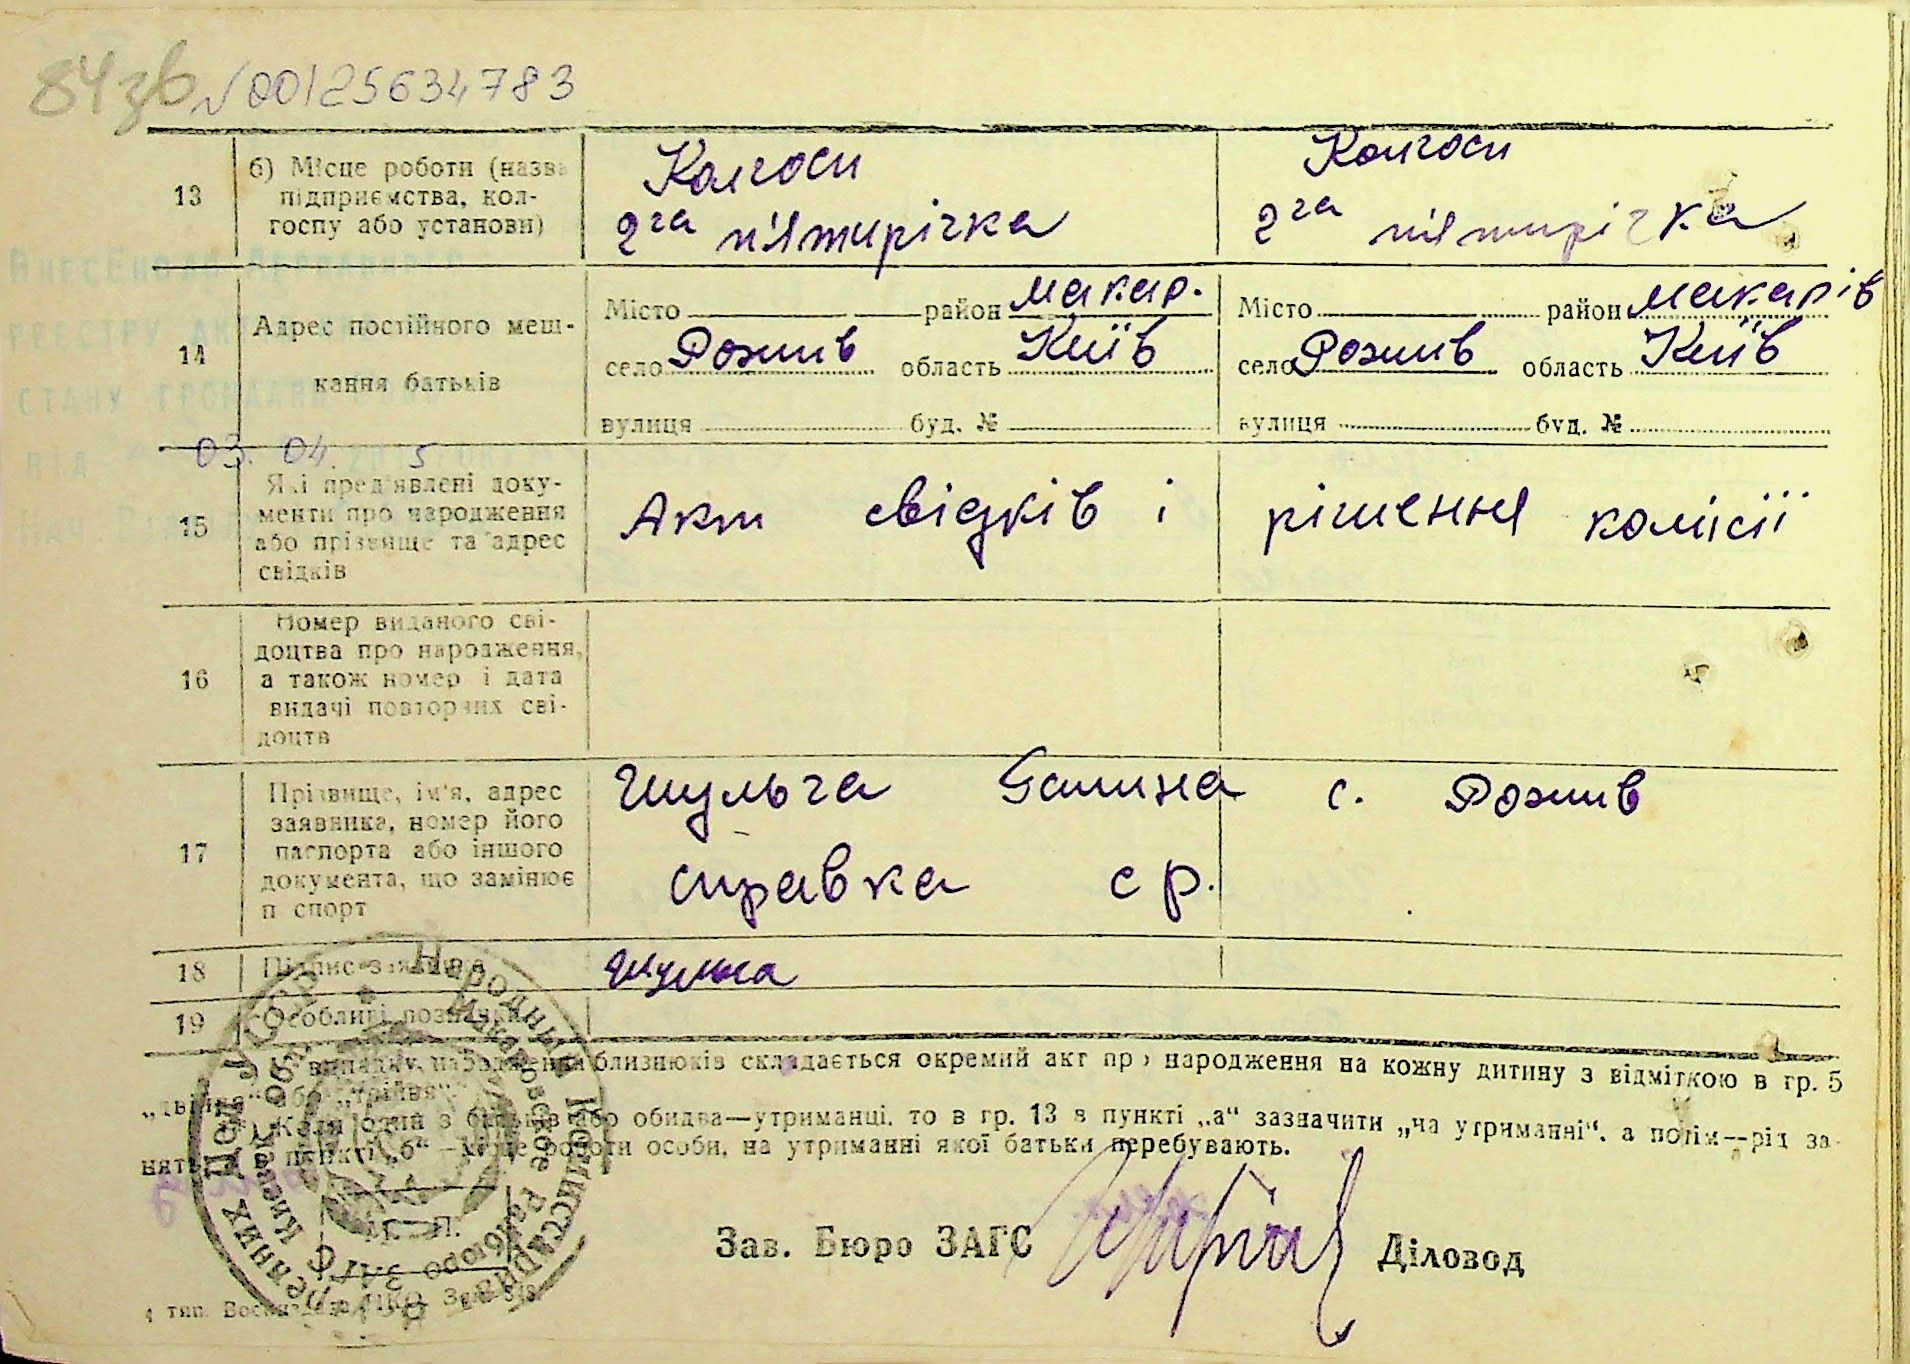 84зв № 00125634783
13
б) Місце роботи (назва підприємства, колгоспу або установи)
Колгосп
2га п'ятирічка
Колгосп
2га п'ятирічка
14
Адрес постійного мешкання батьків
Місто район Макар.
село Рожив область Київ
вулиця буд. №
Місто район Макарів
село Рожив область Київ
вулиця буд. №
03. 04. 5
15
Які пред'явлені документи про народження або прізвище та адрес свідків
Акт свідків і рішення комісії
16
Номер виданого свідоцтва про народження, а також номер і дата видачі повторних свідоцтв
17
Прізвище, ім'я, адрес заявника, номер його паспорта або іншого документа, що замінює п спорт
Шульга Галина с. Рожив
справка с р.
18
Підпис заявника
Шульга
19
Особливі позначки
випадку народження близнюків складається окремий акт про народження на кожну дитину з відміткою в гр. 5
„двійня“ або „трійня“.
Коли один з батьків або обидва—утриманці, то в гр. 13 в пункті „а“ зазначити „на утриманні“, а потім—рід за-
нять, в пункті „б“ —місце роботи особи, на утриманні якої батьки перебувають.
Зав. Бюро ЗАГС
Діловод